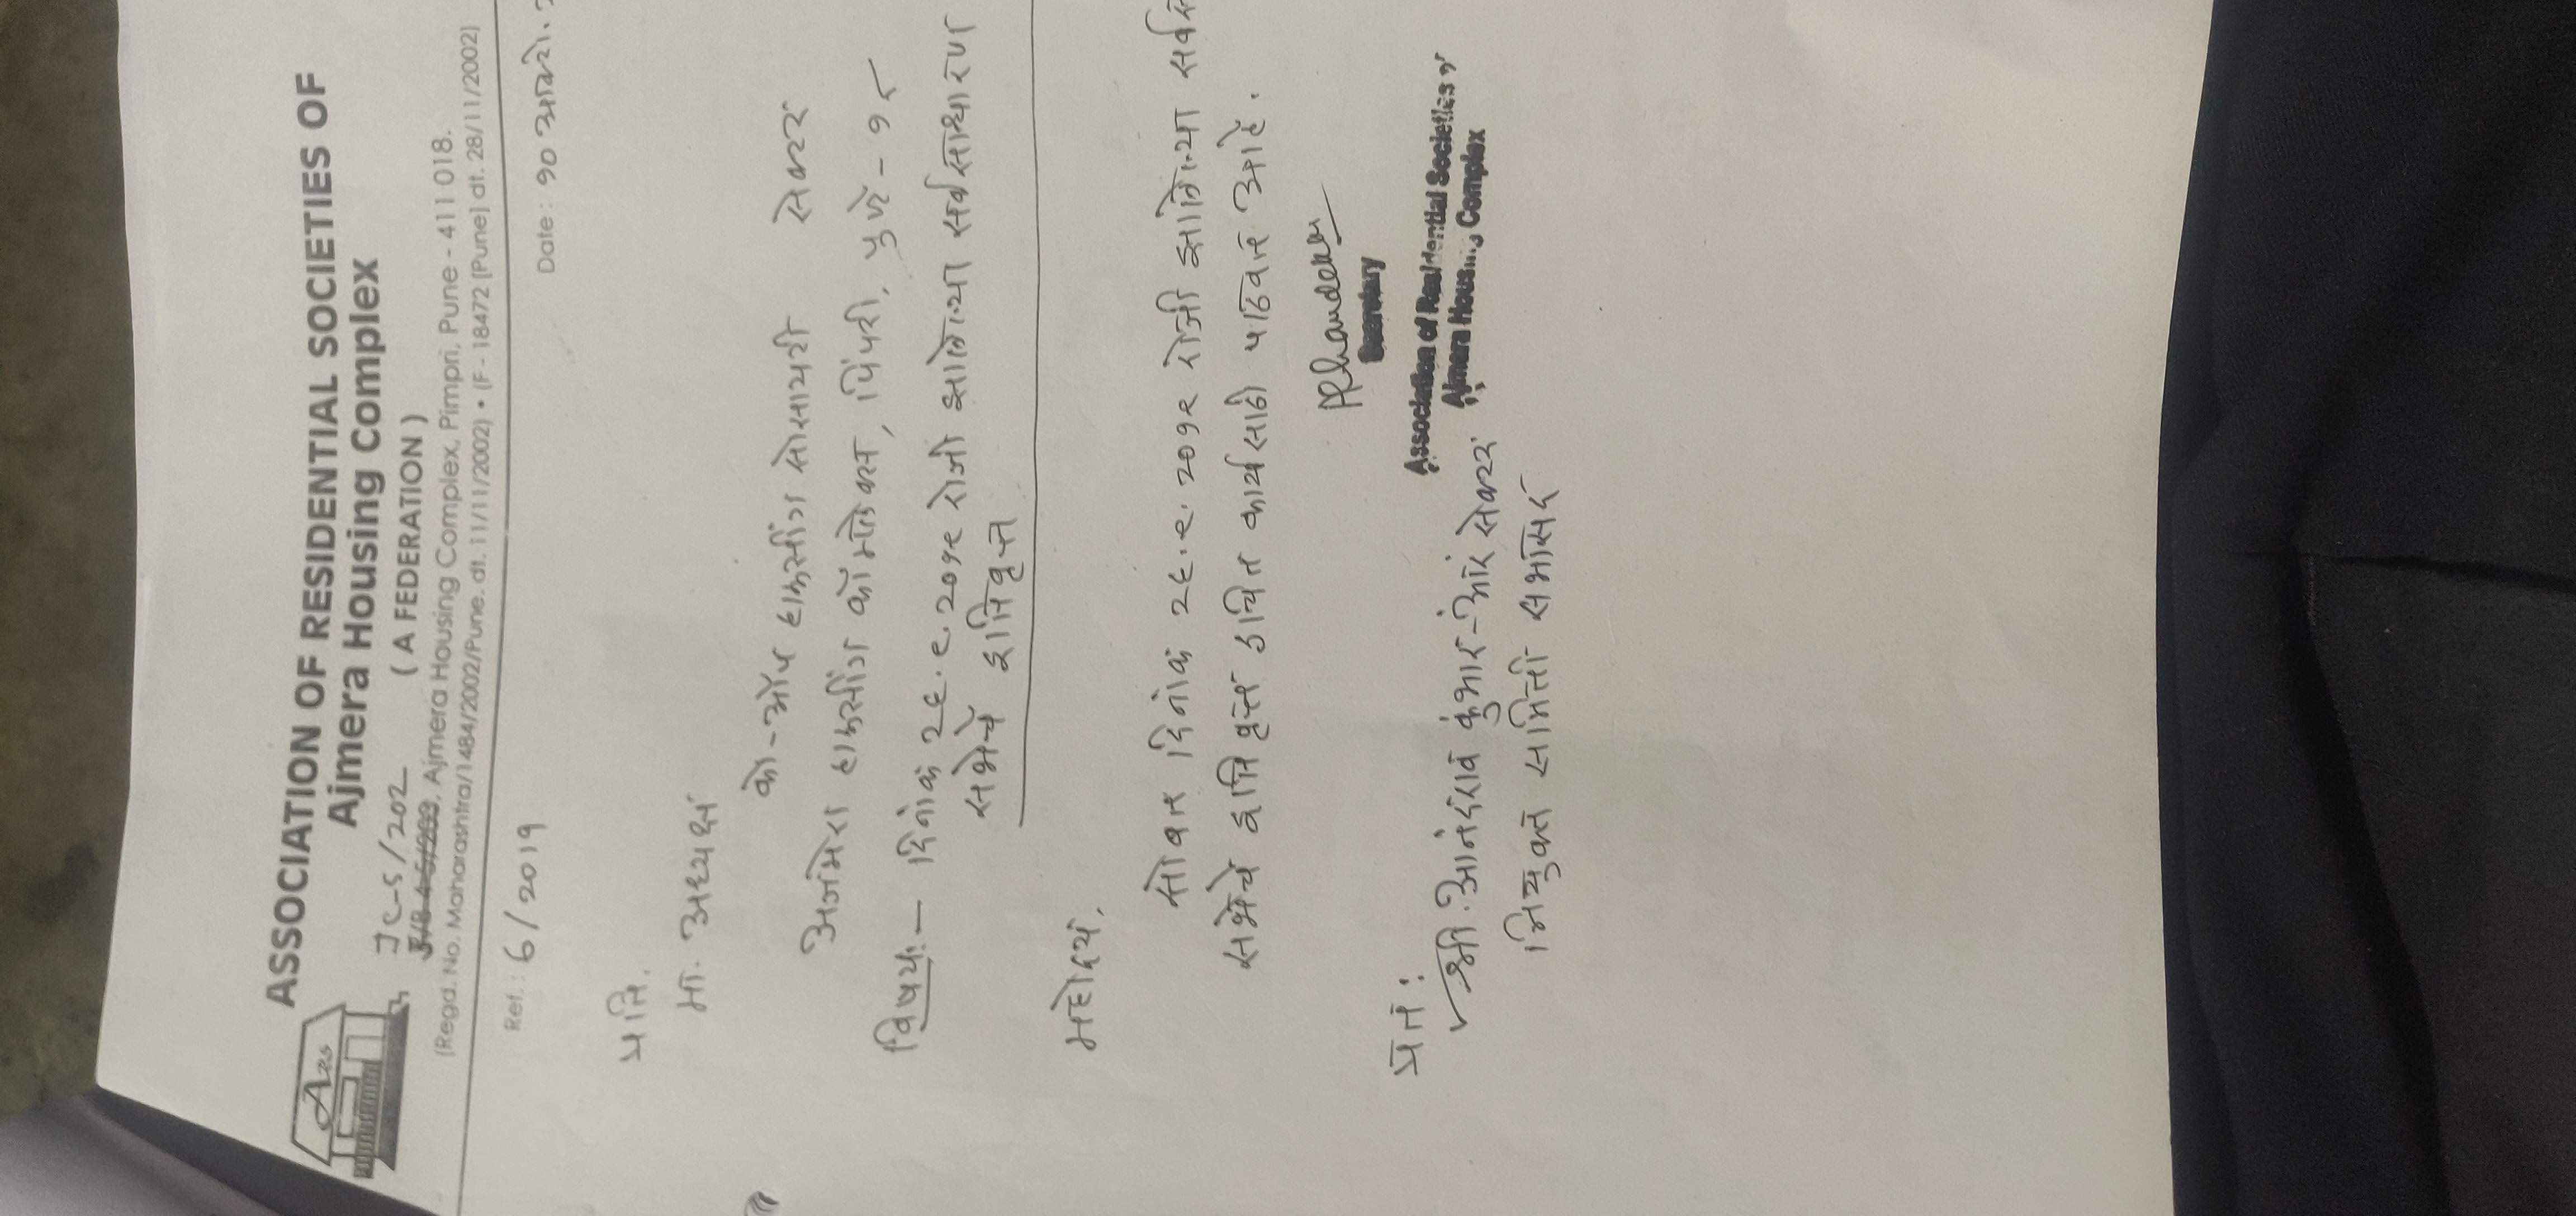 ARS
ASSOCIATION OF RESIDENTIAL SOCIETIES OF
Ajmera Housing Complex
( A FEDERATION )
JC-5/202
J/B 4-5/203, Ajmera Housing Complex, Pimpri, Pune - 411 018.
(Regd. No. Maharashtra/1484/2002/Pune. dt. 11/11/2002) • (F - 18472 [Pune] dt. 28/11/2002)
Ref. : 6/2019
Date : १० ऑक्टो.
प्रति.
मा. अध्यक्ष
को-ऑप हाऊसींग सोसायटी सेक्टर
अजमेरा हाऊसींग कॉम्प्लेक्स, पिंपरी, पुणे - १८
विषय:- दिनांक २६.९.२०१९ रोजी झालेल्या सर्वसाधारण
सभेचे इतिवृत्त
महोदय,
सोबत दिनांक २६.९.२०१९ रोजी झालेल्या
सभेचे इतिवृत्त उचित कार्यसाठी पाठवत आहे.
Secretary
Association of Residential Societies of
Ajmera Housing Complex
प्रत:
श्री. आनंदराव कुंभार - आर सेक्टर
नियुक्त समिती सभासद